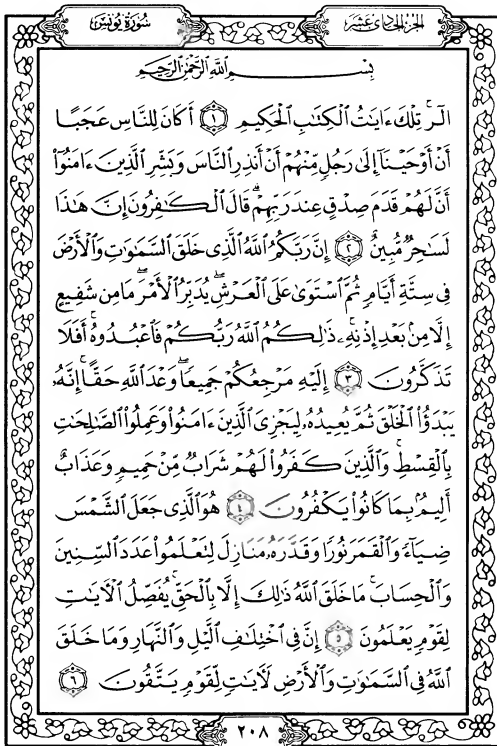 الجزء الحادي عشر
سورة يونس
بِسْمِ اللَّهِ الرَّحْمَٰنِ الرَّحِيمِ
الٓرۚ تِلۡكَ ءَايَٰتُ ٱلۡكِتَٰبِ ٱلۡحَكِيمِ ١ أَكَانَ لِلنَّاسِ عَجَبًا
أَنۡ أَوۡحَيۡنَآ إِلَىٰ رَجُلٖ مِّنۡهُمۡ أَنۡ أَنذِرِ ٱلنَّاسَ وَبَشِّرِ ٱلَّذِينَ ءَامَنُوٓاْ
أَنَّ لَهُمۡ قَدَمَ صِدۡقٍ عِندَ رَبِّهِمۡۗ قَالَ ٱلۡكَٰفِرُونَ إِنَّ هَٰذَا
لَسَٰحِرٞ مُّبِينٌ ٢ إِنَّ رَبَّكُمُ ٱللَّهُ ٱلَّذِي خَلَقَ ٱلسَّمَٰوَٰتِ وَٱلۡأَرۡضَ
فِي سِتَّةِ أَيَّامٖ ثُمَّ ٱسۡتَوَىٰ عَلَى ٱلۡعَرۡشِۖ يُدَبِّرُ ٱلۡأَمۡرَۖ مَا مِن شَفِيعٍ
إِلَّا مِنۢ بَعۡدِ إِذۡنِهِۦۚ ذَٰلِكُمُ ٱللَّهُ رَبُّكُمۡ فَٱعۡبُدُوهُۚ أَفَلَا
تَذَكَّرُونَ ٣ إِلَيۡهِ مَرۡجِعُكُمۡ جَمِيعٗاۖ وَعۡدَ ٱللَّهِ حَقًّاۚ إِنَّهُۥ
يَبۡدَؤُاْ ٱلۡخَلۡقَ ثُمَّ يُعِيدُهُۥ لِيَجۡزِيَ ٱلَّذِينَ ءَامَنُواْ وَعَمِلُواْ ٱلصَّٰلِحَٰتِ
بِٱلۡقِسۡطِۚ وَٱلَّذِينَ كَفَرُواْ لَهُمۡ شَرَابٞ مِّنۡ حَمِيمٖ وَعَذَابٌ
أَلِيمُۢ بِمَا كَانُواْ يَكۡفُرُونَ ٤ هُوَ ٱلَّذِي جَعَلَ ٱلشَّمۡسَ
ضِيَآءٗ وَٱلۡقَمَرَ نُورٗا وَقَدَّرَهُۥ مَنَازِلَ لِتَعۡلَمُواْ عَدَدَ ٱلسِّنِينَ
وَٱلۡحِسَابَۚ مَا خَلَقَ ٱللَّهُ ذَٰلِكَ إِلَّا بِٱلۡحَقِّۚ يُفَصِّلُ ٱلۡأٓيَٰتِ
لِقَوۡمٖ يَعۡلَمُونَ ٥ إِنَّ فِي ٱخۡتِلَٰفِ ٱلَّيۡلِ وَٱلنَّهَارِ وَمَا خَلَقَ
ٱللَّهُ فِي ٱلسَّمَٰوَٰتِ وَٱلۡأَرۡضِ لَأٓيَٰتٖ لِّقَوۡمٖ يَتَّقُونَ ٦
٢٠٨